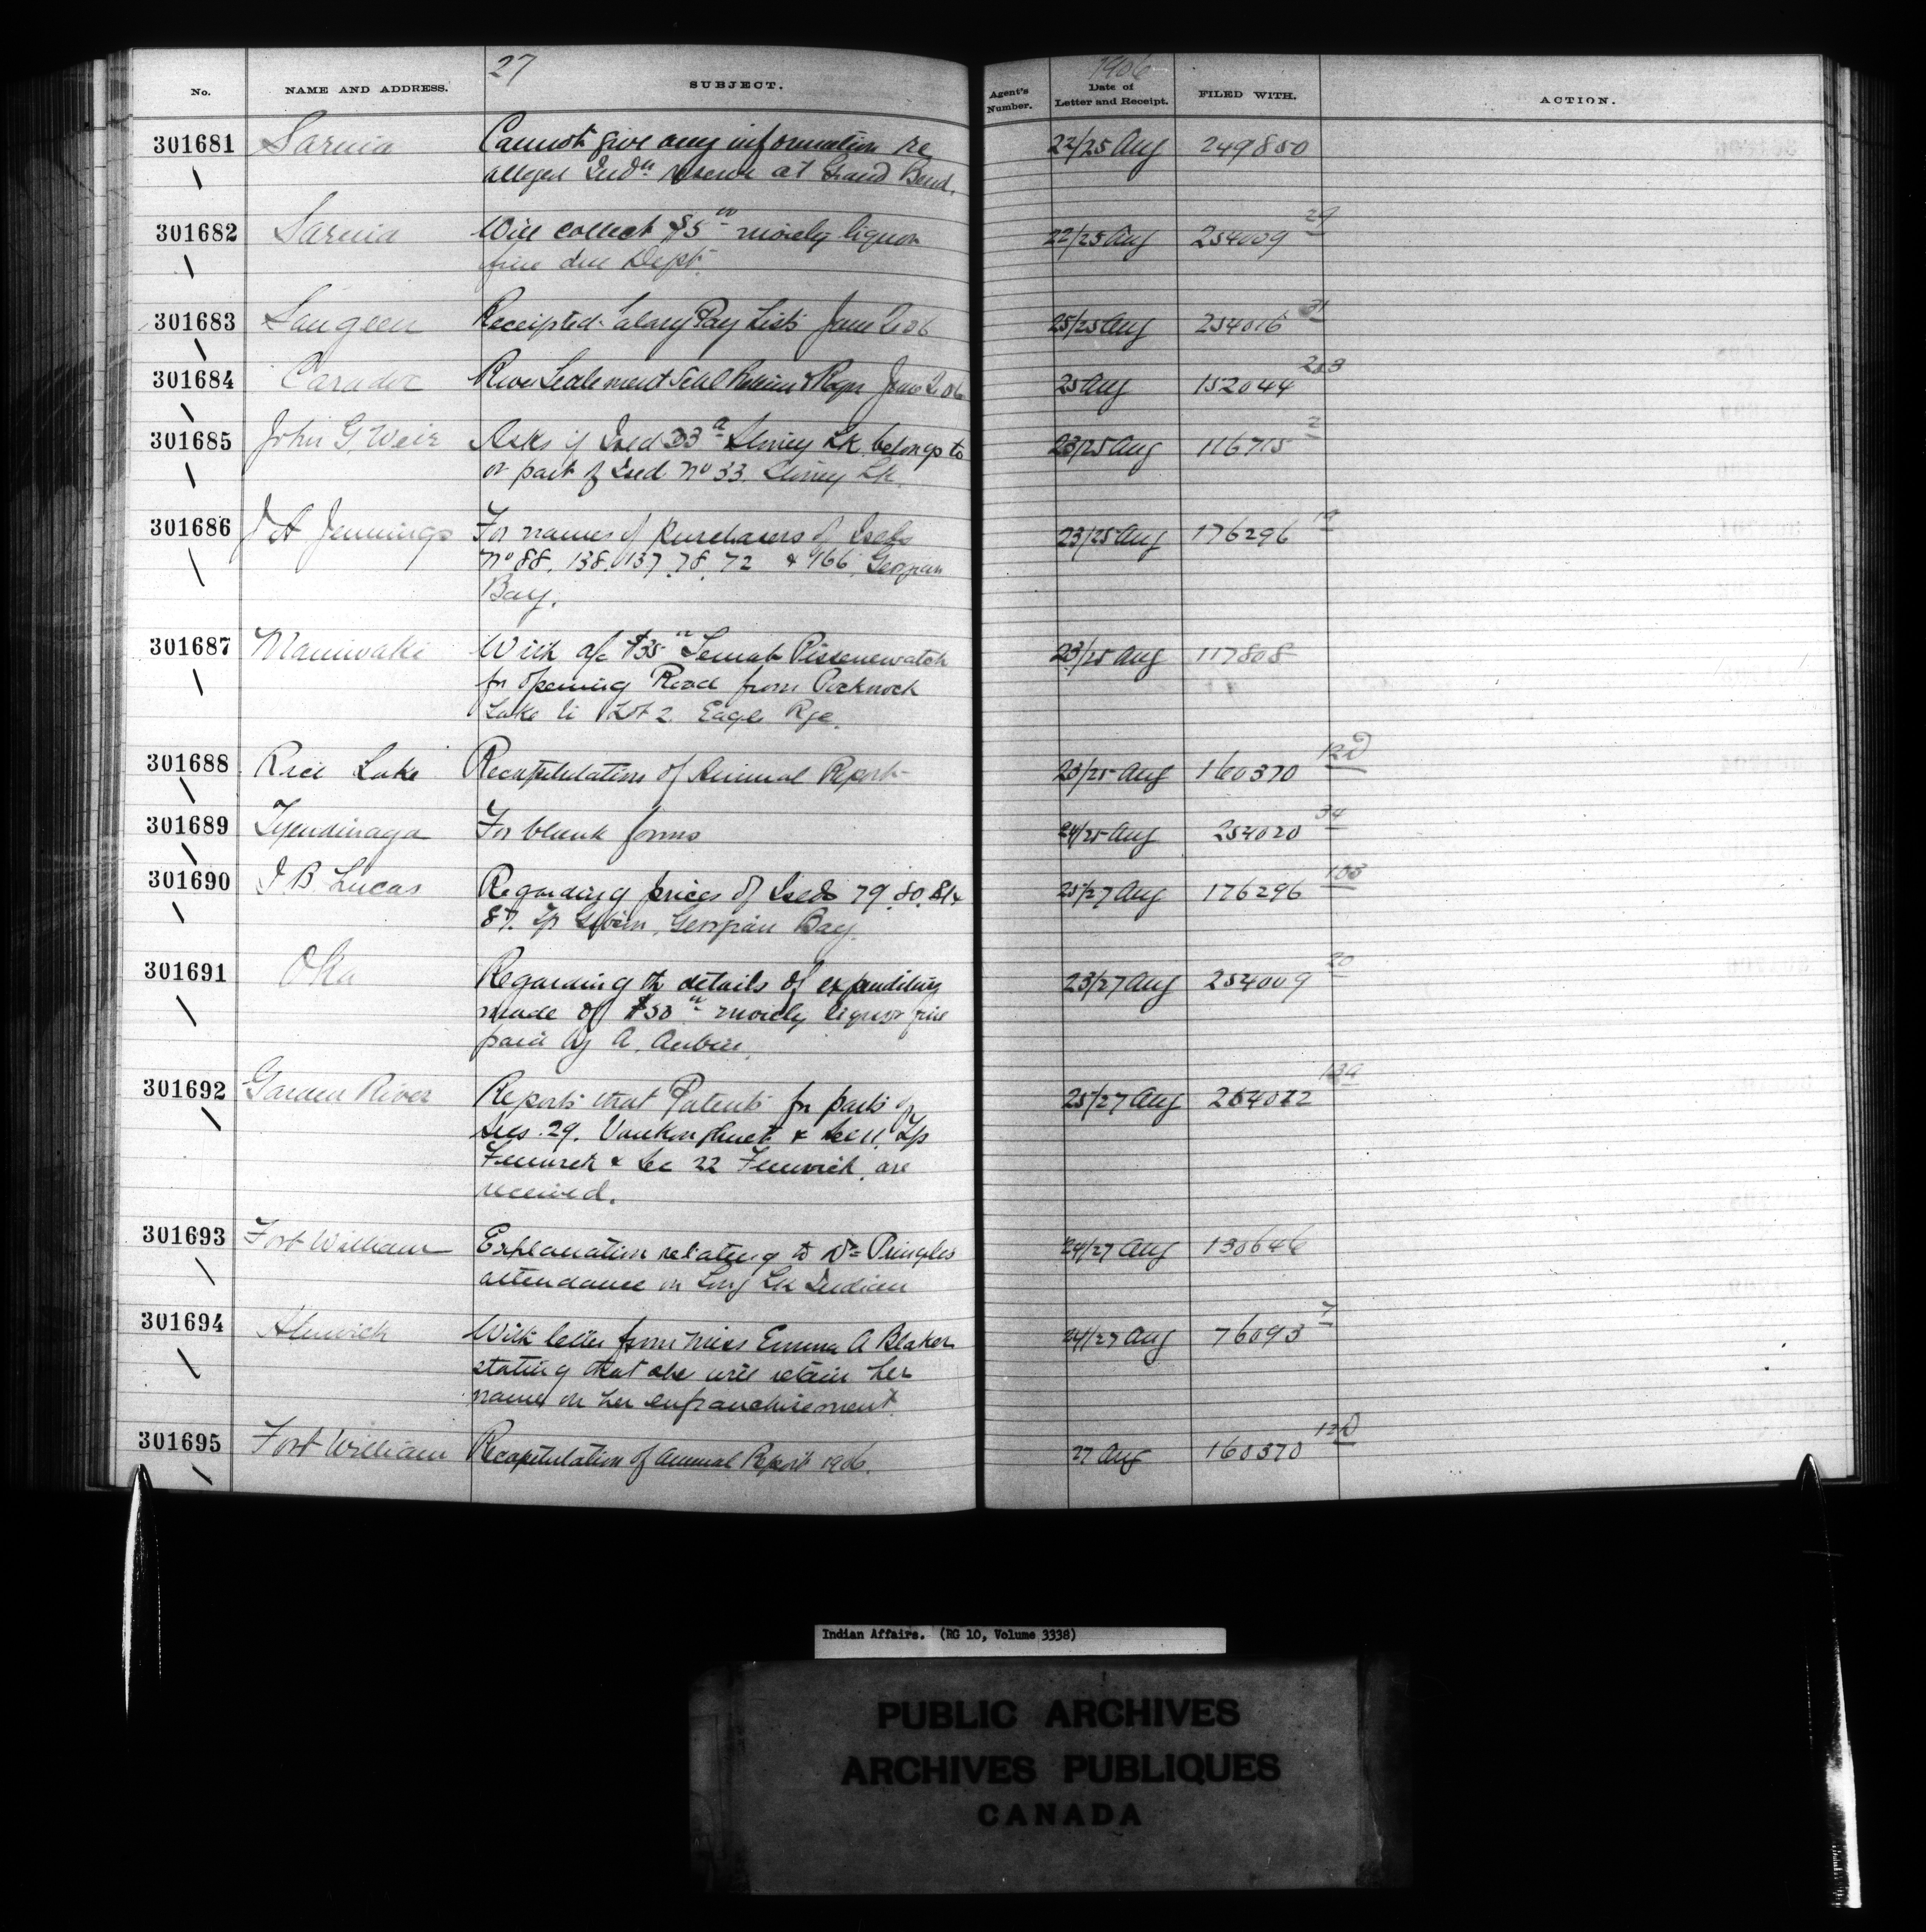 27
1906
No. NAME AND ADDRESS. SUBJECT. Agent's Number. Date of Letter and Receipt. FILED WITH. ACTION.
301681 Sarnia Cannot give any information re 22/25 Aug 249850
alleged Indn reserve at Grand Bend.
301682 Sarnia Will collect $5 00 moiety liquor 22/25 Aug 254009 29
fine due Dept.
301683 Saugeen Receipted Salary Pay Lists June 2 06 25/25 Aug 254016 31
301684 Caradoc River Settlement School Return June 2 06 25 Aug 152044
301685 John G Weir Asks if Isld 33 a Stoney Lk. belongs to 23/25 Aug 116715 2
or part of Isld No 33. Stoney Lk.
301686 J A Jennings For names of purchasers of Islds 23/25 Aug 176296
No 88, 138, 137, 78, 72 & 166, Georgian
Bay.
301687 Maniwaki With a/c $35 00 23/25 Aug 117808
for opening Road from Pocknock
Lake to Lot 2. Eagle Rge.
301688 Rice Lake Recapitulation of Annual Report 23/25 Aug 160370 12D
301689 Tyendinaga For blank forms 24/25 Aug 254020 34
301690 J B Lucas Regarding prices of Islds 79, 80, 81 & 25/27 Aug 176296 103
87. Tp Gibson, Georgian Bay.
301691 Oka Regarding the details of expenditure 23/27 Aug 254009 20
made of $50 00 moiety liquor fine
paid by A. Aubin.
301692 Garden River Reports that Patents for parts of 25/27 Aug 254012
Secs. 29. Vankoughnet & Sec 11, Tp
Fenwick & Sec 22 Fenwick, are
received.
301693 Fort William Explanation relating to Dr Pringles 24/27 Aug 130646
attendance on Long Lk Indian
301694 Alnwick With letter from Miss Emma A Blaker 24/27 Aug 76093 7
stating that she will retain her
name on her enfranchisement.
301695 Fort William Recapitulation of Annual Report 1906. 27 Aug 160370 12D
Indian Affairs. (RG 10, Volume 3338)
PUBLIC ARCHIVES
ARCHIVES PUBLIQUES
CANADA